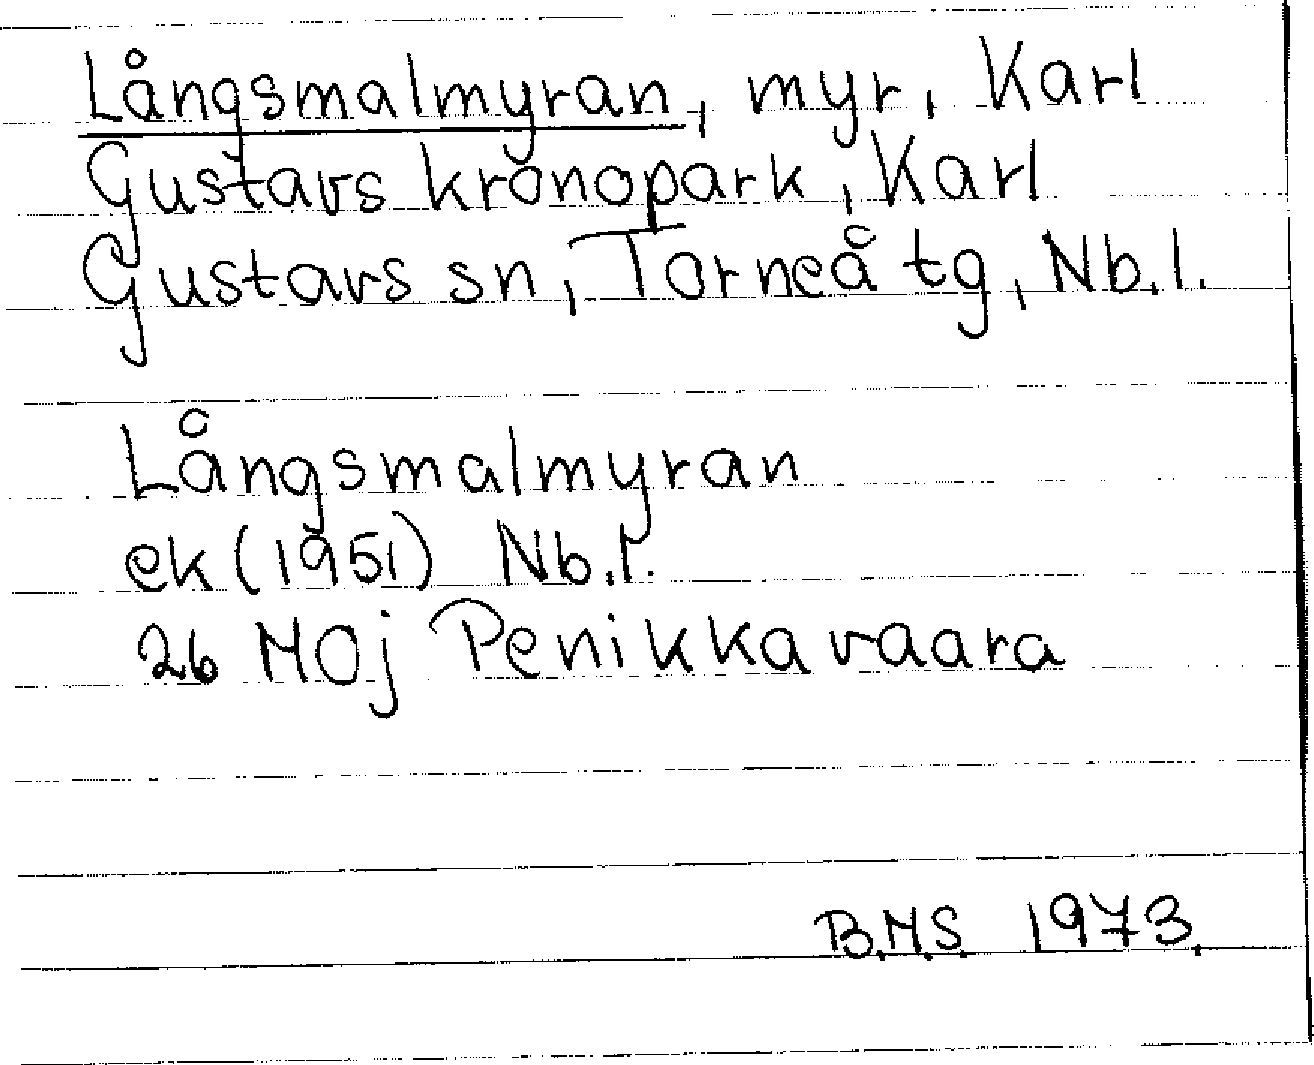 Långsmalmyran, myr, Karl
Gustavs kronopark, Karl
Gustavs sn, Torneå tg, Nb.l.
Långsmalmyran
ek (1951) Nb.l.
26 MOj Penikkavaara
B.M.S. 1973.